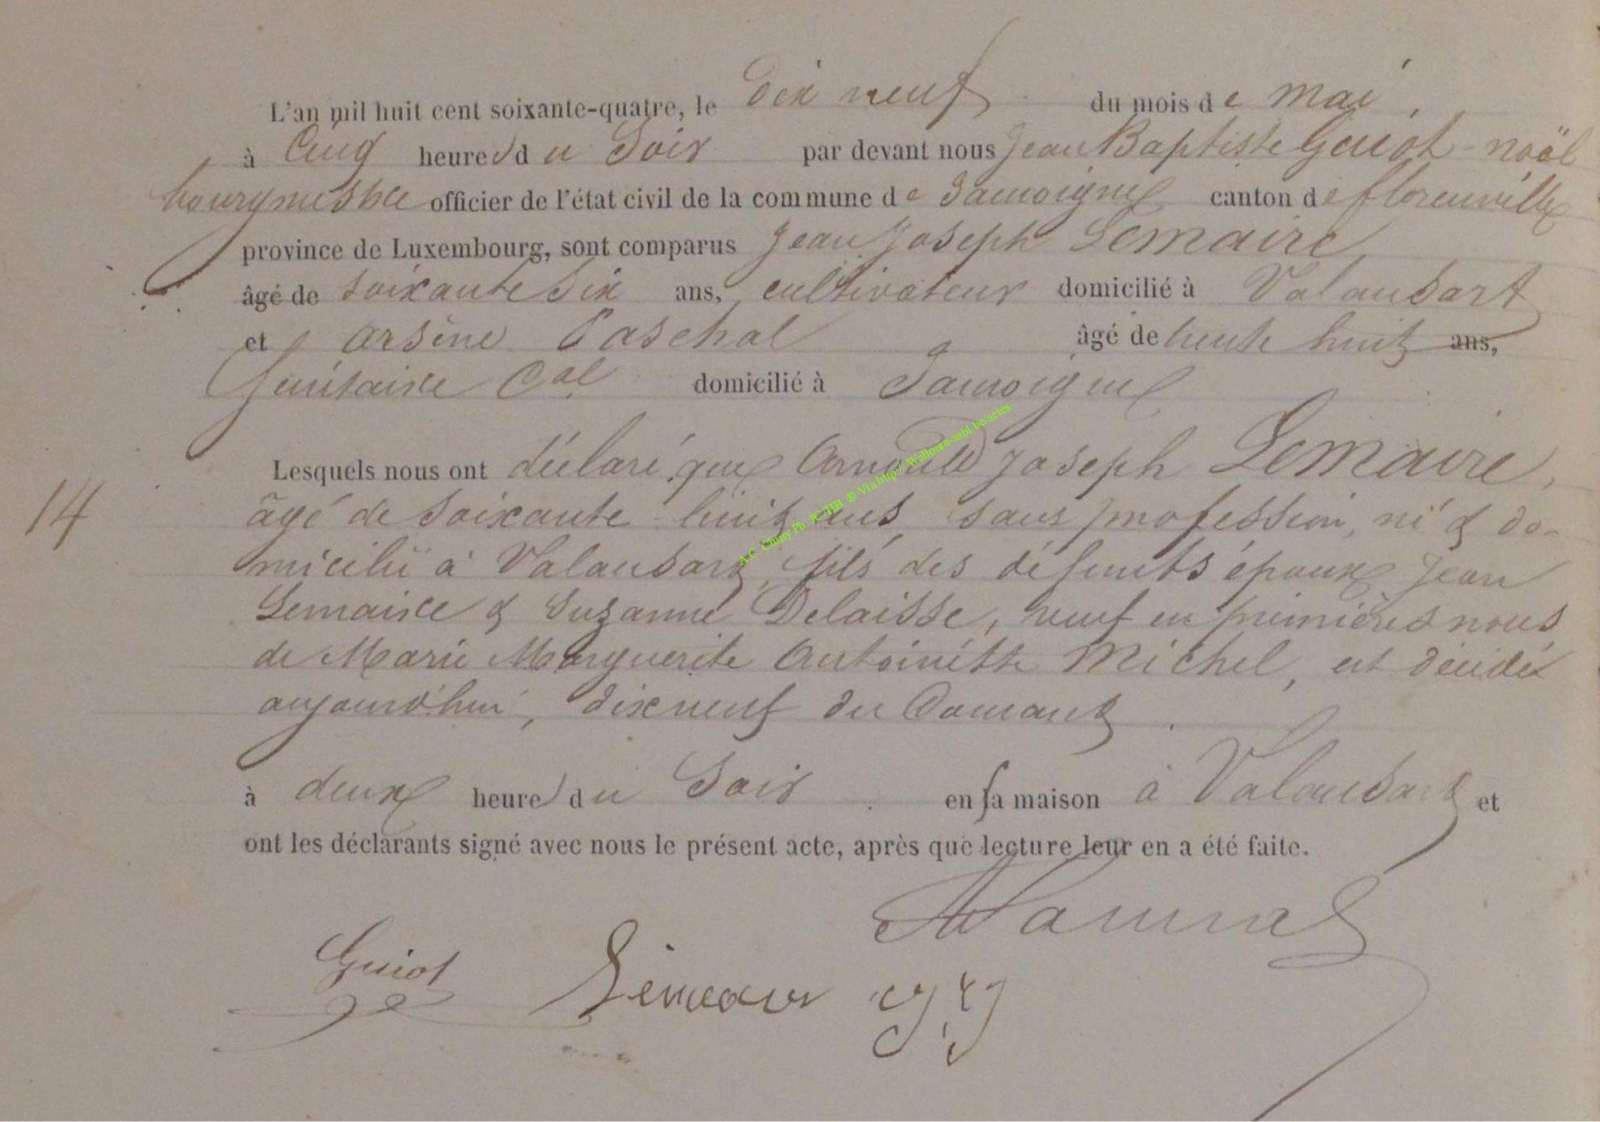 L'an mil huit cent soixante-quatre, le dix neuf du mois de mai,
à Cinq heures du Soir par devant nous Jean Baptiste Guiot-noël
bourgmestre officier de l'état civil de la commune de Jamoigne canton de florenville
province de Luxembourg, sont comparus Jean Joseph Lemaire,
âgé de soixante six ans, cultivateur domicilié à Valansart
et Arsène Paschal âgé de trente huit ans,
Secrétaire Cal domicilié à Jamoigne
Lesquels nous ont déclaré que Arnould Joseph Lemaire,
14
âgé de soixante huit ans, sans profession, né & do-
micilié à Valansart, fils des défunts époux Jean
Lemaire & Suzanne Delaisse, veuf en premières nous
de Marie Marguerite Antoinette Michel, est décédé
aujourd'hui, dix neuf du Courant.
à deux heures du Soir en sa maison à Valansart et
ont les déclarants signé avec nous le présent acte, après que lecture leur en a été faite.
Guiot